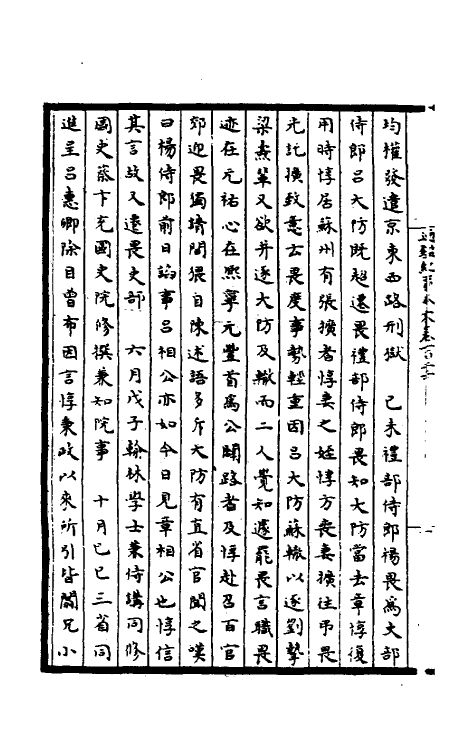 均權發遣京東西路刑獄　己未禮部侍郎楊畏爲吏部
侍郎呂大防既超遷畏禮部侍郎畏知大防當去章惇復
用時惇居蘇州有張擴者惇妻之姪惇方喪妻擴往弔畏
先託擴致意云畏度事勢輕重因呂大防蘇轍以逐劉摯
梁燾輩又欲并逐大防及轍而二人覺知遽罷畏言職畏
迹在元祐心在熙寧元豐首爲公闢路者及惇赴召百官
郊迎畏獨請間猥自陳述語多斥大防有直省官聞之嘆
曰楊侍郎前日諂事呂相公亦如今日見章相公也惇信
其言故又遷畏吏部　六月戊子翰林學士兼侍講同修
國史蔡卞充國史院修撰兼知院事　十月己巳三省同
進呈呂惠卿除目曾布因言惇秉政以來所引皆闒冗小